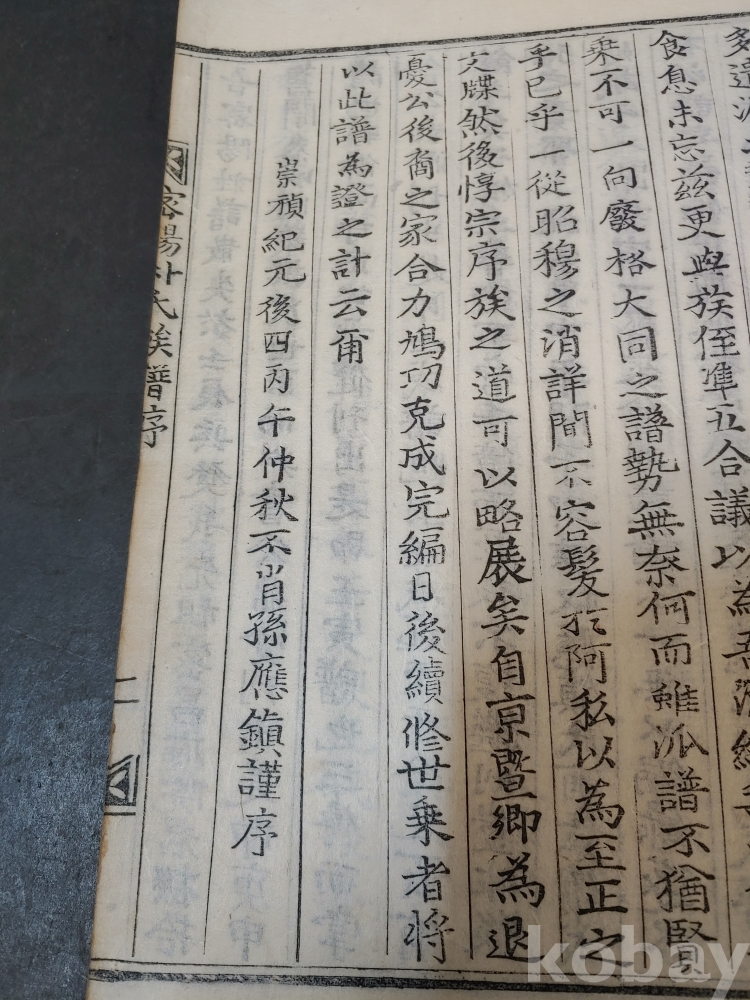 多遺派
食息未忘茲更與族侄準五合議以為
乘不可一向廢格大同之譜勢無奈何而雖派譜不猶賢
乎已乎一從昭穆之消詳間不容髮於阿私以為至正之
文牒然後惇宗序族之道可以略展矣自京暨鄉為退
憂公後裔之家合力鳩功克成完編日後續修世乘者將
以此譜為證之計云爾
崇禎紀元後四丙午仲秋不肖孫應鎮謹序
密陽朴氏族譜序
二
kobay